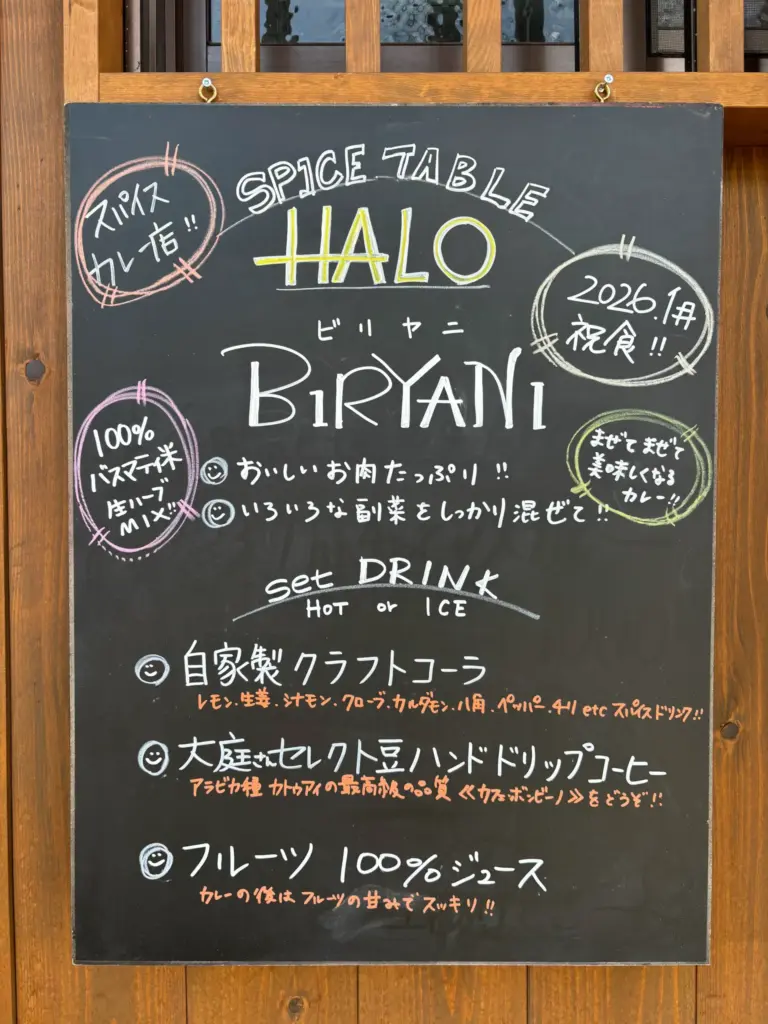 SPICE TABLE
HALO
スパイス
カレー店!!
2026.1月
祝食!!
ビリヤニ
BIRYANI
100%
バスマティ米
生ハーブ
MIX!!
おいしいお肉たっぷり!!
いろいろな副菜をしっかり混ぜて!!
まぜてまぜて
美味しくなる
カレー!!
set DRINK
HOT or ICE
自家製クラフトコーラ
レモン.生姜.シナモン.クローブ.カルダモン.八角.ペッパー.チリ etc スパイスドリンク!!
大庭さんセレクト豆ハンドドリップコーヒー
アラビカ種 カトゥアイの最高級の品質≪カフェ・ボンビーノ≫をどうぞ!!
フルーツ 100%ジュース
カレーの後はフルーツの甘みでスッキリ!!